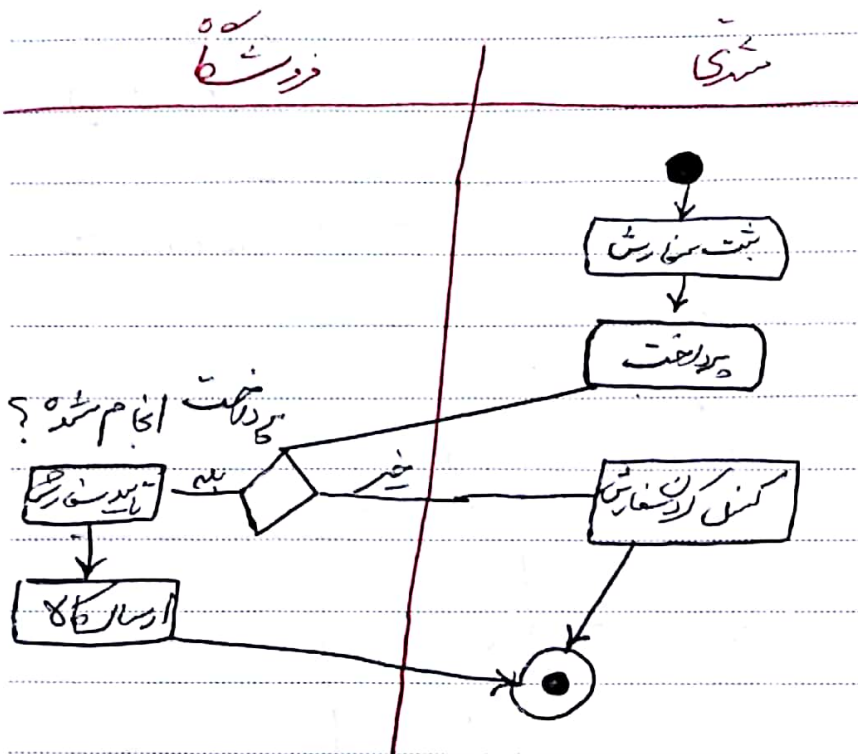 مشتری
فروشگاه
ثبت سفارش
پرداخت
پرداخت انجام شده ؟
خیر
بله
کنسل کردن سفارش
تایید سفارش
ارسال کالا